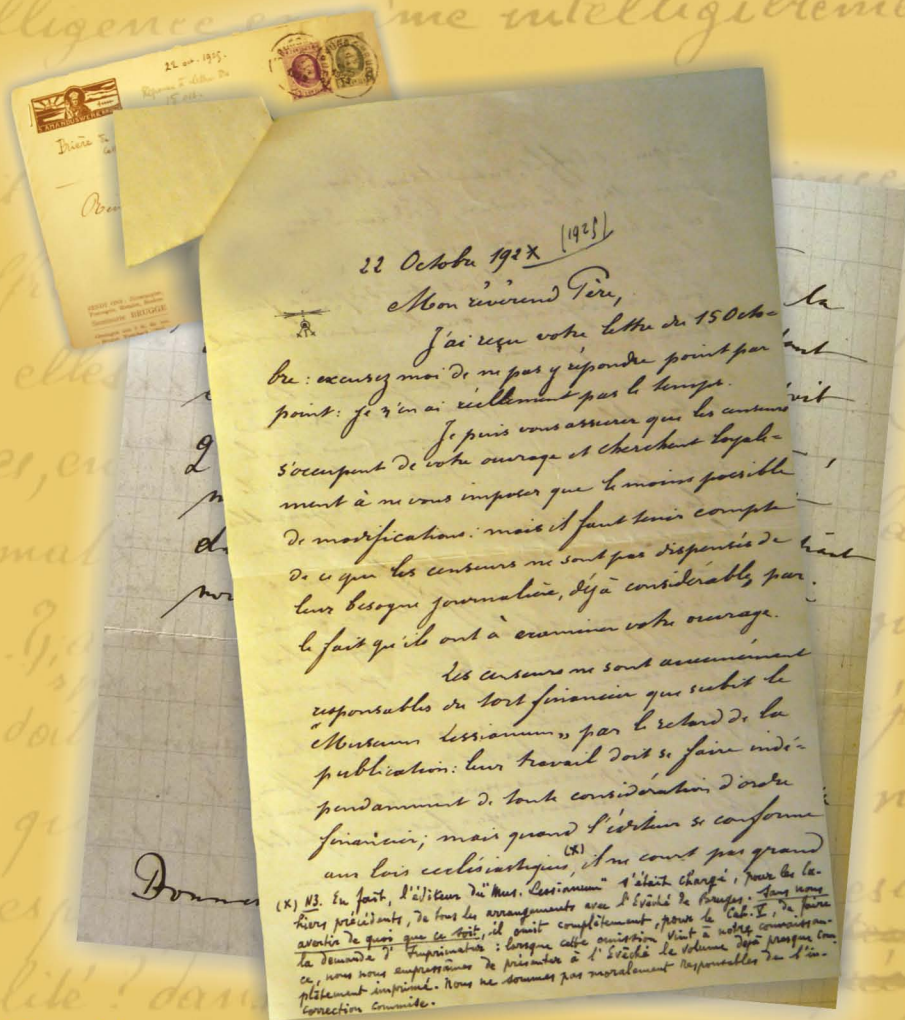 22 oct. 1925.
Réponse à lettre du
15 oct.
L'AMANDUSWERK
Brière
Seminarie BRUGGE
22 Octobre 192X (1925)
Mon révérend Père,
J'ai reçu votre lettre du 15 Octo=
bre : excusez moi de ne pas y répondre point par
point : je n'en ai réellement pas le temps.
Je puis vous assurer que les censeurs
s'occupent de votre ouvrage et cherchent loyale=
ment à ne vous imposer que le moins possible
de modifications : mais il faut tenir compte
de ce que les censeurs ne sont pas dispensés de
leur besogne journalière, déjà considérable, par
le fait qu'ils ont à examiner votre ouvrage.
Les censeurs ne sont aucunément
responsables du tort financier que subit le
"Museum Lessianum" par le retard de la
publication : leur travail doit se faire indé=
pendamment de toute considération d'ordre
financier ; mais quand l'éditeur se conforme
aux lois ecclésiastiques (X), il ne court pas grand
(X) NB. En fait, l'éditeur du "Mus. Lessianum" s'était chargé, pour les Ca-
hiers précédents, de tous les arrangements avec l'Evêché de Bruges. Sans nous
avertir de quoi que ce soit, il omit complètement, pour le Cah. V, de faire
la demande d'Imprimatur : lorsque cette omission vint à notre connaissan-
ce, nous nous empressâmes de présenter à l'Evêché le volume déjà presque com-
plètement imprimé. Nous ne sommes pas moralement responsables de l'in-
correction commise.
la
Donne